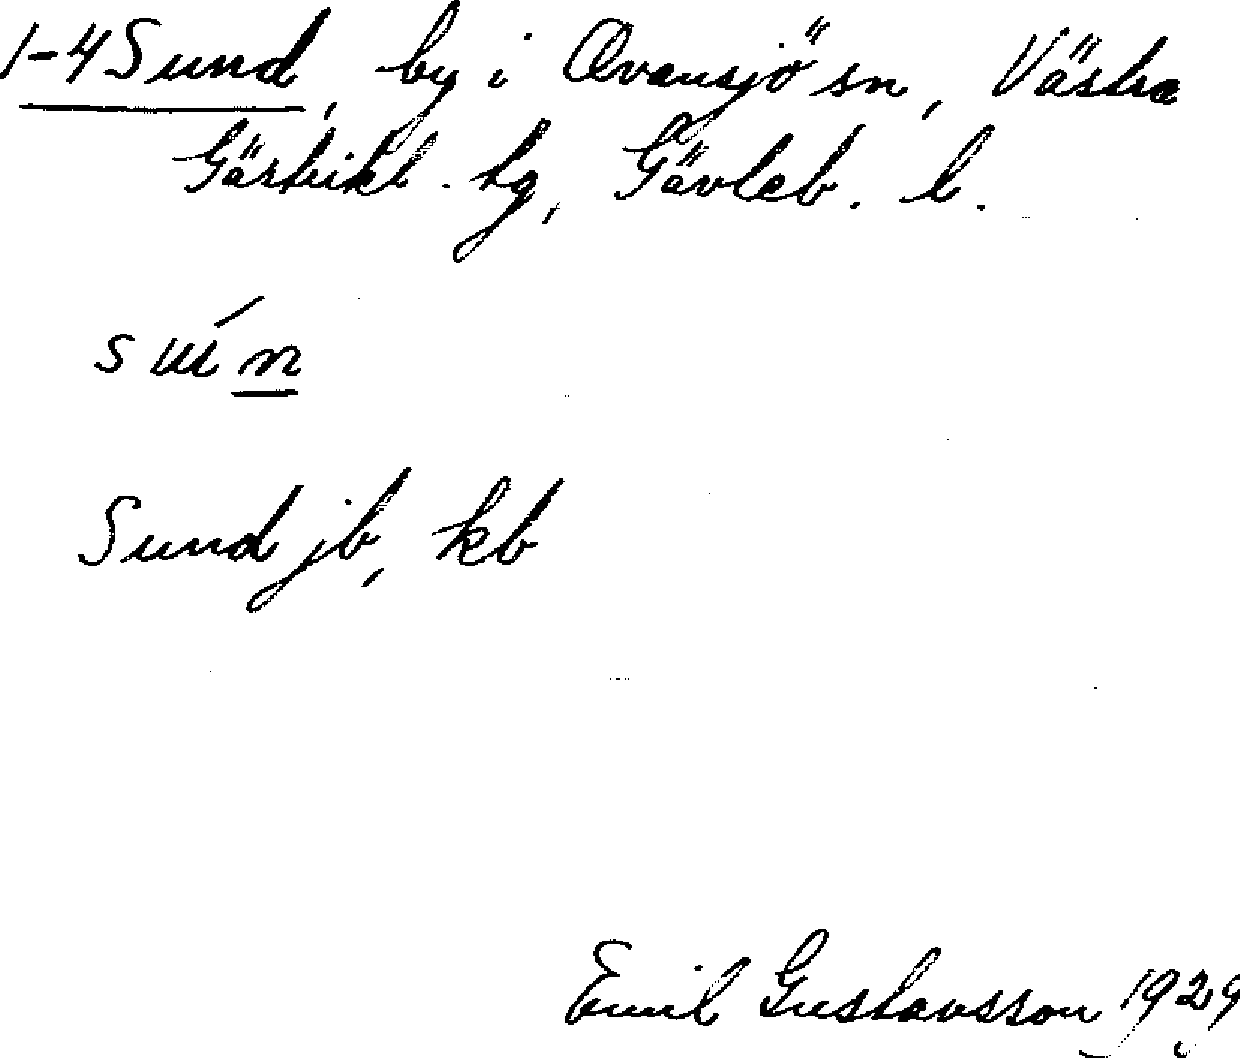 1-4 Sund, by i Ovansjö sn, Västra
Gästrikl. tg, Gävleb. l.
Sund jb, kb
Emil Gustavsson 1929